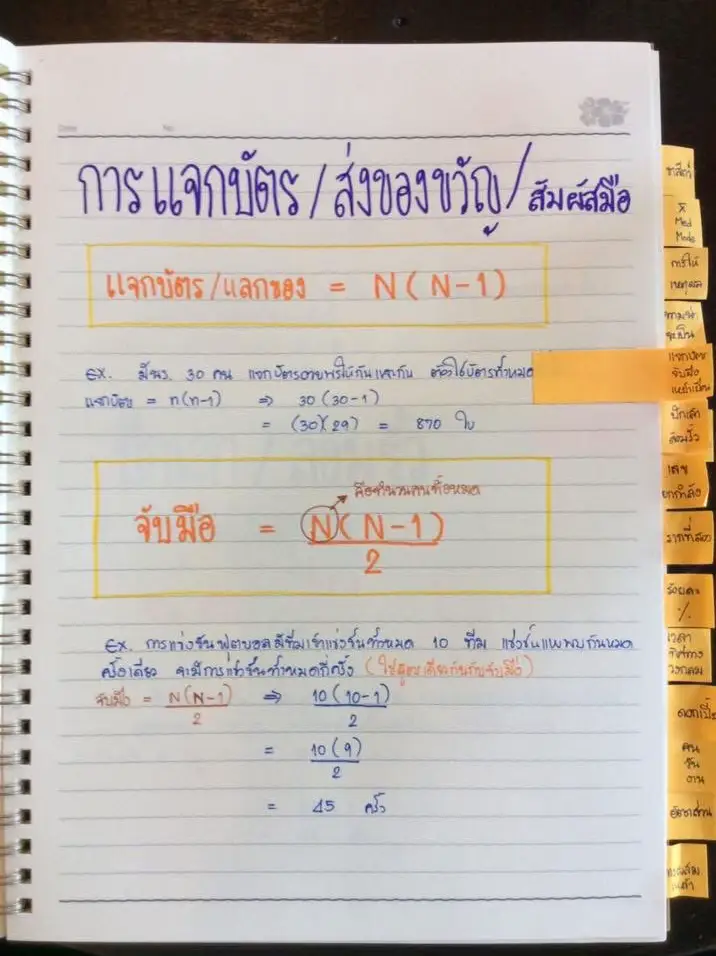 การแจกบัตร/ส่งของขวัญ/สัมผัสมือ
แจกบัตร/แลกของ = N(N-1)
EX. มีนร. 30 คน แจกบัตรอวยพรให้กันและกัน ต้องใช้บัตรทั้งหมด
แจกบัตร = n(n-1) ⇒ 30(30-1)
= (30)(29) = 870 ใบ
คือจำนวนคนทั้งหมด
จับมือ = N(N-1)
2
EX. การแข่งขันฟุตบอลมีทีมเข้าแข่งขันทั้งหมด 10 ทีม แข่งขันแบบพบกันหมด
ครั้งเดียว จะมีการแข่งขันทั้งหมดกี่ครั้ง (ใช้สูตรเดียวกันกับจับมือ)
จับมือ = N(N-1) ⇒ 10(10-1)
2 2
= 10(9)
2
= 45 ครั้ง
x̄
Med
Mode
การให้
เหตุผล
ความน่า
จะเป็น
แจกบัตร
จับมือ
ปักเสา
ล้อมรั้ว
เลข
ยกกำลัง
รากที่สอง
ร้อยละ
%
เวลา
ทิศทาง
วงกลม
ดอกเบี้ย
คน
วัน
งาน
อัตราส่วน